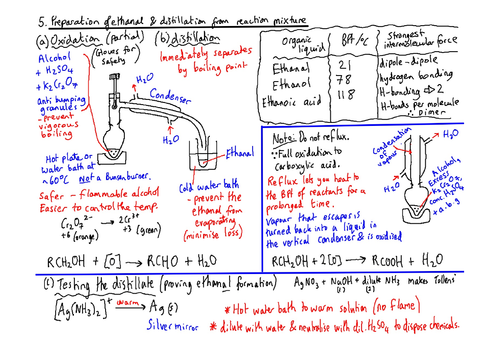 5. Preparation of ethanal & distillation from reaction mixture
(a) Oxidation (partial)
(Gloves for
Safety)
Alcohol
+ H2SO4
+ K2Cr2O7
anti bumping
granules
- prevent
vigorous
boiling
Hot plate or
water bath at
~60°C Not a Bunsen burner.
Safer - flammable alcohol
Easier to control the temp.
Cr2O7²⁻ → 2Cr³⁺
+6 (orange) +3 (green)
RCH2OH + [O] → RCHO + H2O
(b) distillation
Immediately separates
by boiling point
H2O
Condenser
H2O
Ethanal
Cold water bath
- prevent the
ethanal from
evaporating
(minimise loss)
Organic liquid BPt/°C Strongest intermolecular force
Ethanal 21 dipole-dipole
Ethanol 78 hydrogen bonding
Ethanoic acid 118 H-bonding ⇒ 2
H-bonds per molecule
∴ Dimer
Note: Do not reflux.
∵ Full oxidation to
carboxylic acid.
Reflux lets you heat to
the BPt of reactants for a
prolonged time.
Vapour that escapes is
turned back into a liquid in
the vertical condenser & is oxidised
Condensation
of
vapour
H2O
H2O
Alcohol
Excess
K2Cr2O7
conc. H2SO4
+ a.b.g
RCH2OH + 2[O] → RCOOH + H2O
(c) Testing the distillate (proving ethanal formation)
AgNO3 + NaOH + dilute NH3 makes Tollens'
(1) (2)
[Ag(NH3)2]⁺ warm → Ag(s)
Silver mirror
* Hot water bath to warm solution (no flame)
* dilute with water & neutralise with dil. H2SO4 to dispose chemicals.